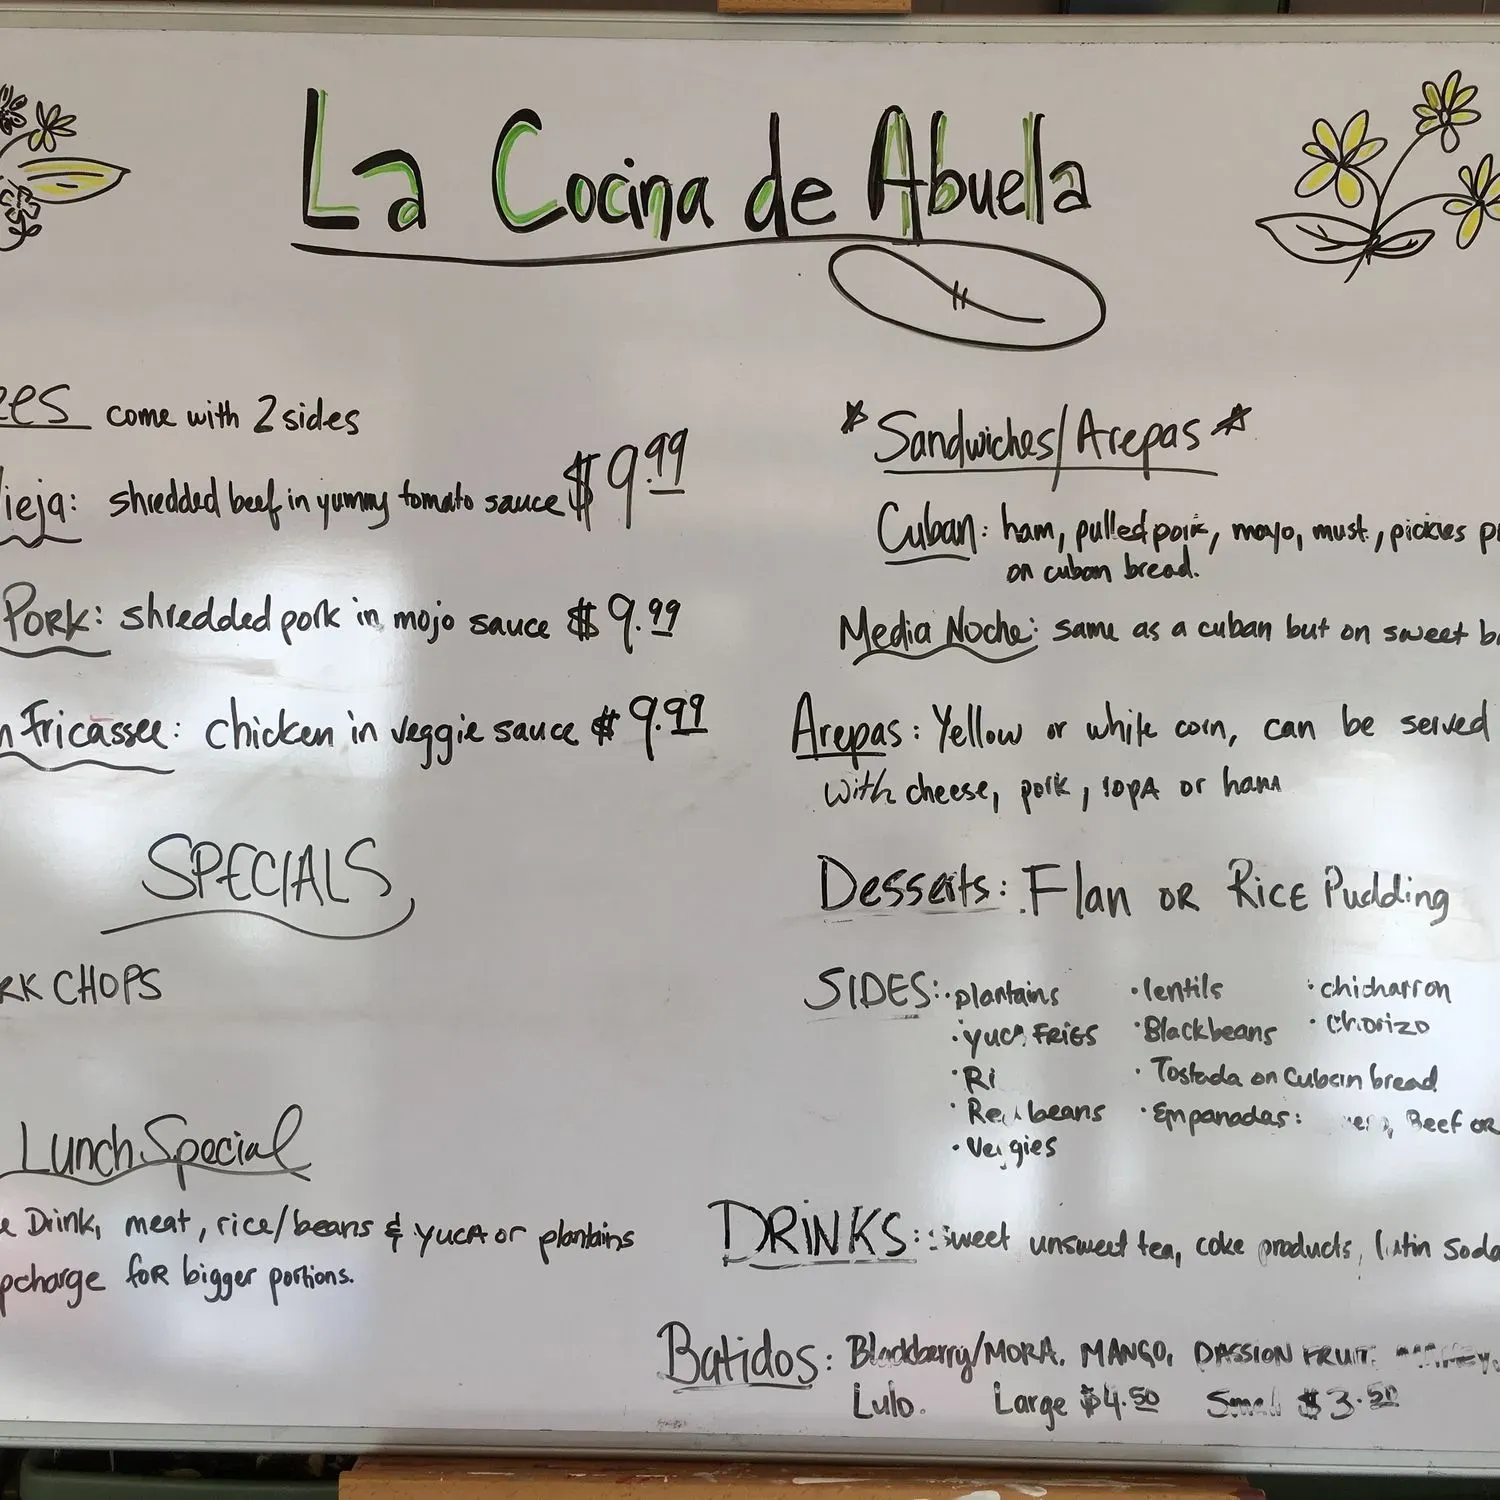 La Cocina de Abuela
come with 2 sides
shredded beef in yummy tomato sauce $9.99
Pork: shredded pork in mojo sauce $9.99
Fricassee: chicken in veggie sauce $9.99
SPECIALS
CHOPS
Lunch Special
Drink, meat, rice/beans & yuca or plantains
for bigger portions.
*Sandwiches/Arepas*
Cuban: ham, pulled pork, mayo, must, pickles
on cuban bread.
Media Noche: same as a cuban but on sweet
Arepas: Yellow or white corn, can be served
with cheese, pork, ropa or ham
Desserts: Flan or Rice Pudding
SIDES: • plantains • lentils • chicharron
• yuca FRIES • Blackbeans • Chorizo
• Tostada on Cuban bread
• Red beans • Empanadas: Beef or
• Veggies
DRINKS: Sweet unsweet tea, coke products, latin soda
Batidos: Blackberry/MORA, MANGO, PASSION FRUIT,
Lulo. Large $4.50 Small $3.50